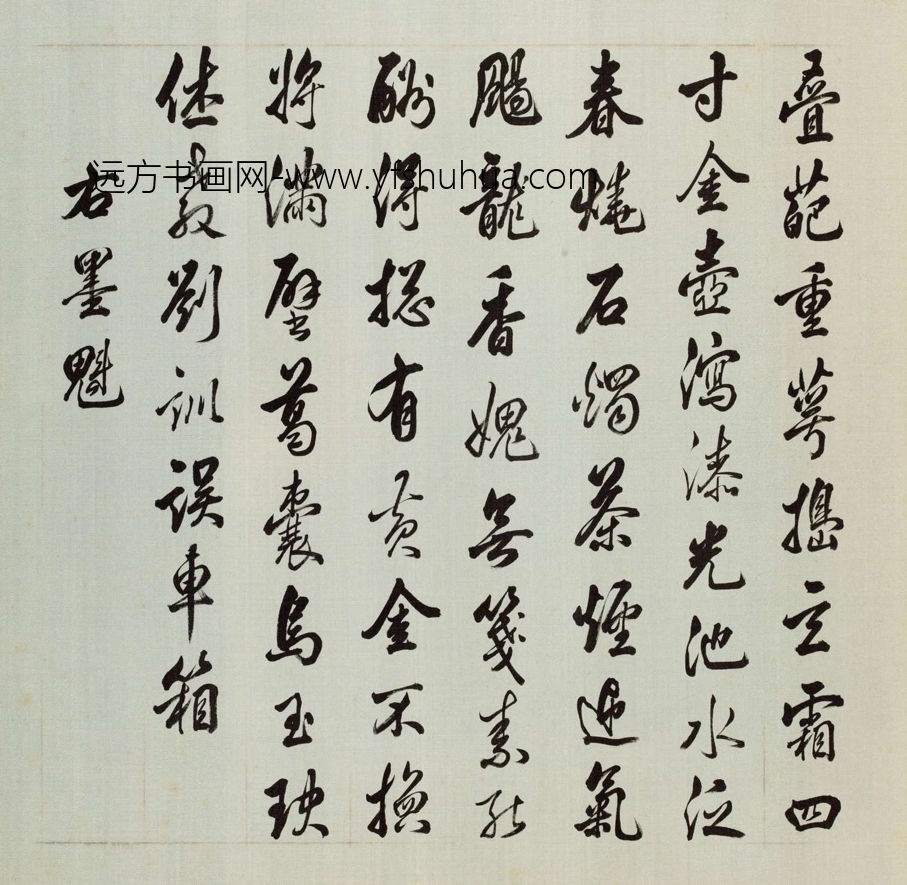 叠葩重萼搗玄霜四
寸金壺瀉漆光池水泛
春燒石燭茶煙遞氣
颺龍香媿無箋素能
酬得摠有黄金不換
將滿壁葛囊烏玉玦
休教劉訓誤車箱
右墨魁
远方书画网-www.yfshuhua.com